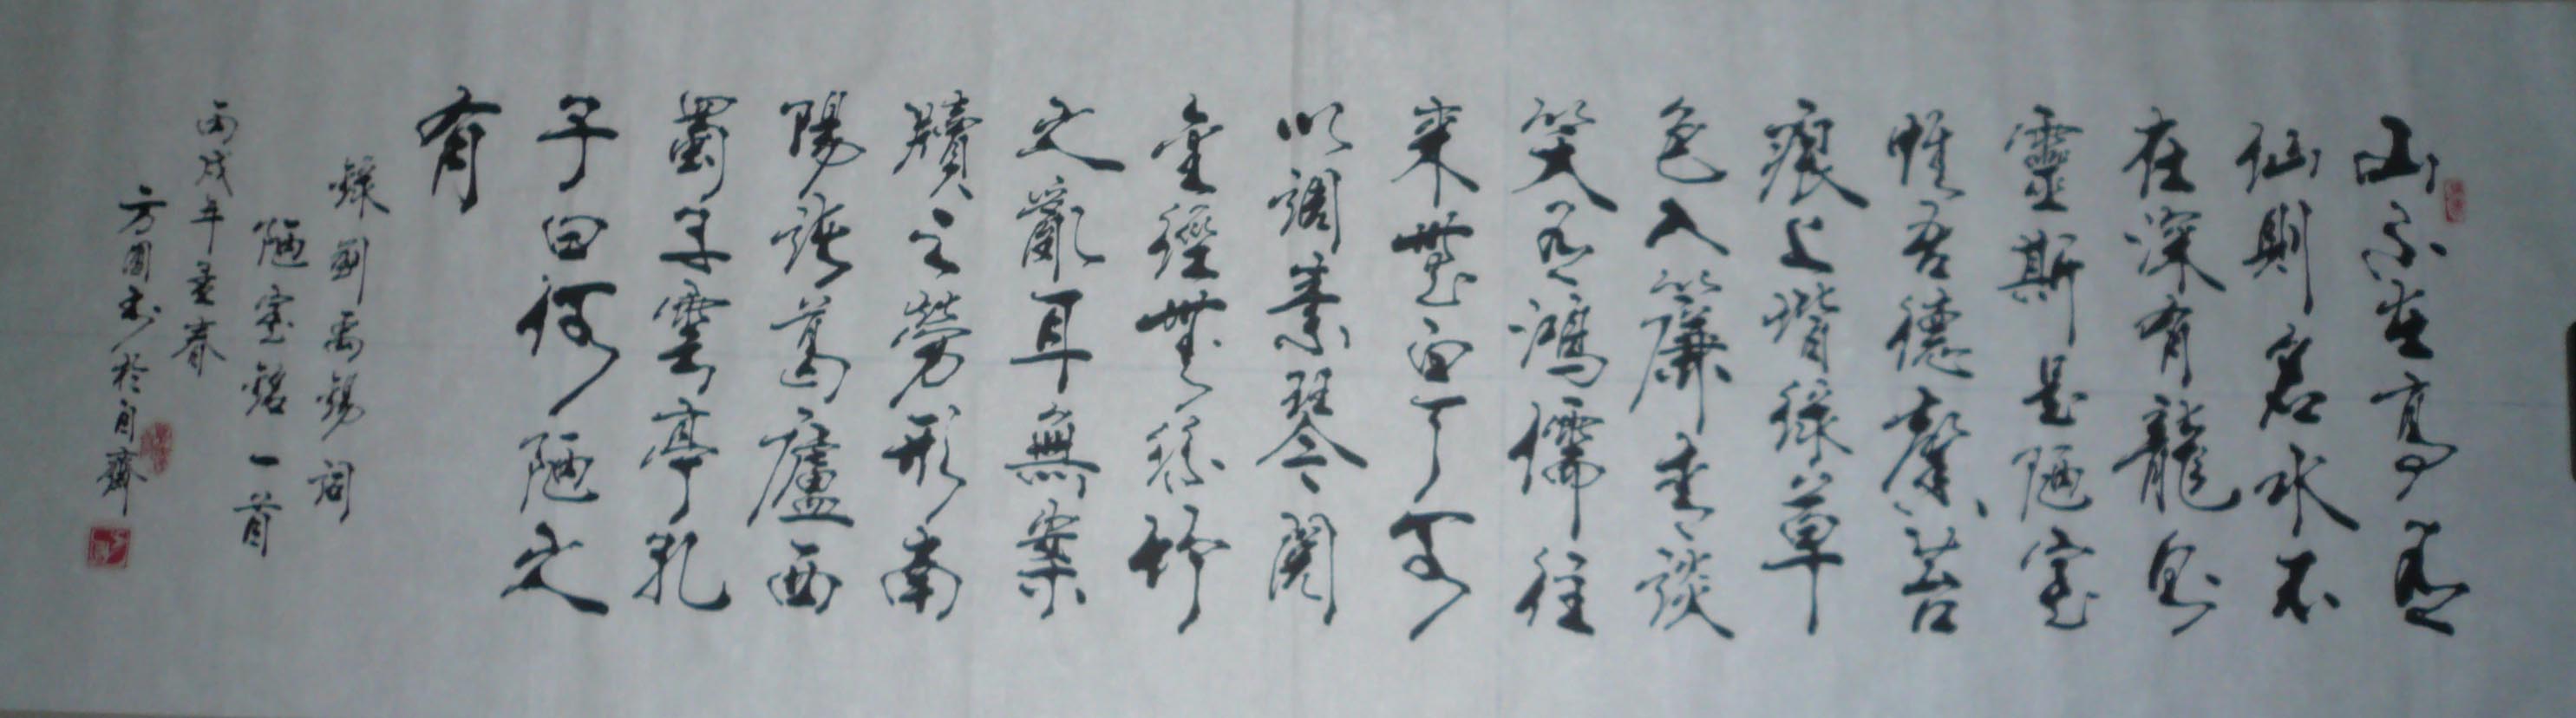 山不在高有
仙則名水不
在深有龍則
靈斯是陋室
惟吾德馨苔
痕上堦緑草
色入簾青談
笑有鴻儒往
來無白丁可
以調素琴閱
金經無絲竹
之亂耳無案
牘之勞形南
陽諸葛廬西
蜀子雲亭孔
子曰何陋之
有
錄劉禹錫詞
陋室銘一首
丙戌年孟春
方圆书於自齋